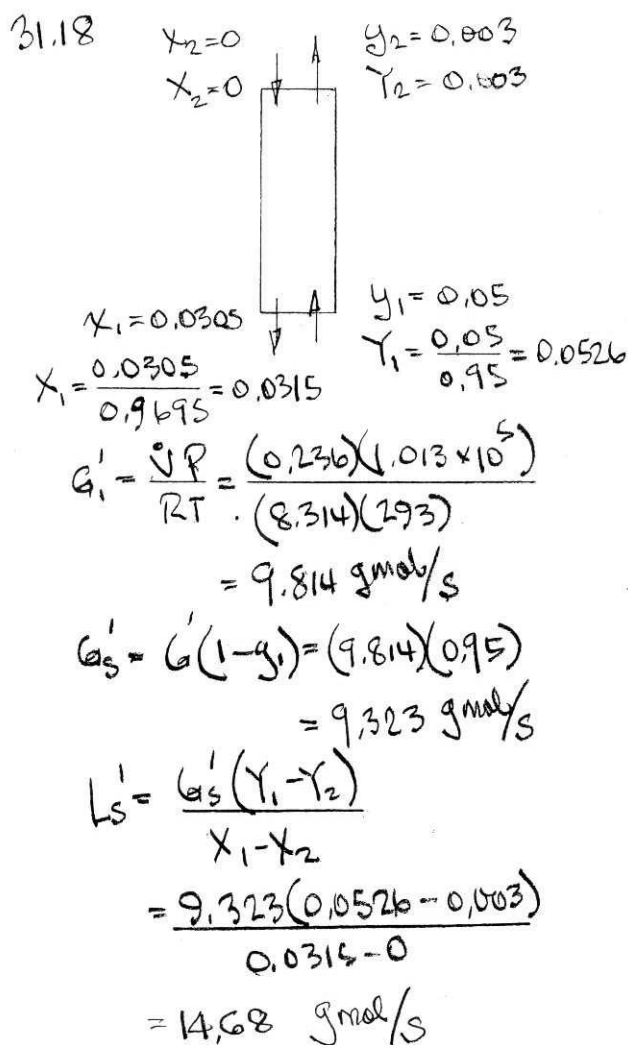 31.18
x₂=0 y₂=0.003
X₂=0 Y₂=0.003
x₁=0.0305 y₁=0.05
X₁= 0.0305/0.9695 =0.0315 Y₁= 0.05/0.95 =0.0526
G₁' = V̇P/RT = (0.236)(1.013×10⁵)/(8.314)(293)
= 9.814 gmol/s
Gs' = G'(1-y₁)=(9.814)(0.95)
= 9.323 gmol/s
Ls' = Gs'(Y₁-Y₂)/X₁-X₂
= 9.323(0.0526-0.003)/0.0315-0
=14.68 gmol/s